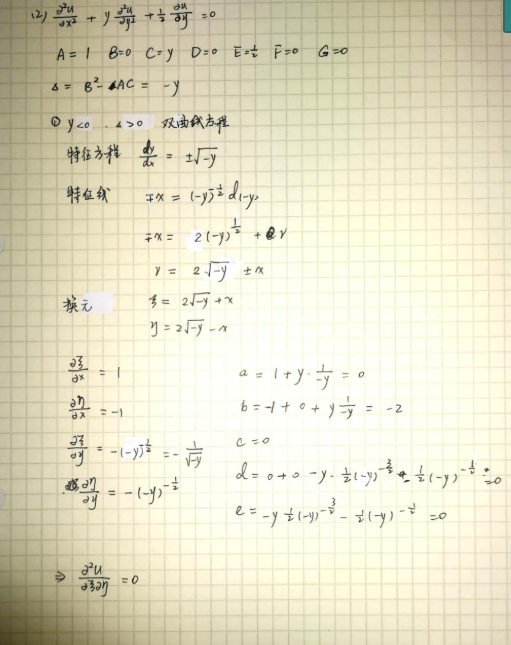 (2) ∂²u/∂x² + y ∂²u/∂y² + 1/2 ∂u/∂y = 0
A = 1 B=0 C=y D=0 E=1/2 F=0 G=0
Δ = B²-AC = -y
① y<0 . Δ>0 双曲线方程
特征方程 dy/dx = ±√-y
特征线 ∓x = (-y)^{-1/2} d(-y)
∓x = 2(-y)^{1/2} + r
r = 2√-y ± x
换元 ξ = 2√-y + x
η = 2√-y - x
∂ξ/∂x = 1
∂η/∂x = -1
∂ξ/∂y = -(-y)^{-1/2} = - 1/√-y
∂η/∂y = -(-y)^{-1/2}
a = 1 + y · 1/-y = 0
b = -1 + 0 + y 1/-y = -2
c = 0
d = 0+0 -y · 1/2(-y)^{-3/2} - 1/2(-y)^{-1/2} = 0
e = -y 1/2(-y)^{-3/2} - 1/2(-y)^{-1/2} = 0
⇒ ∂²u/∂ξ∂η = 0